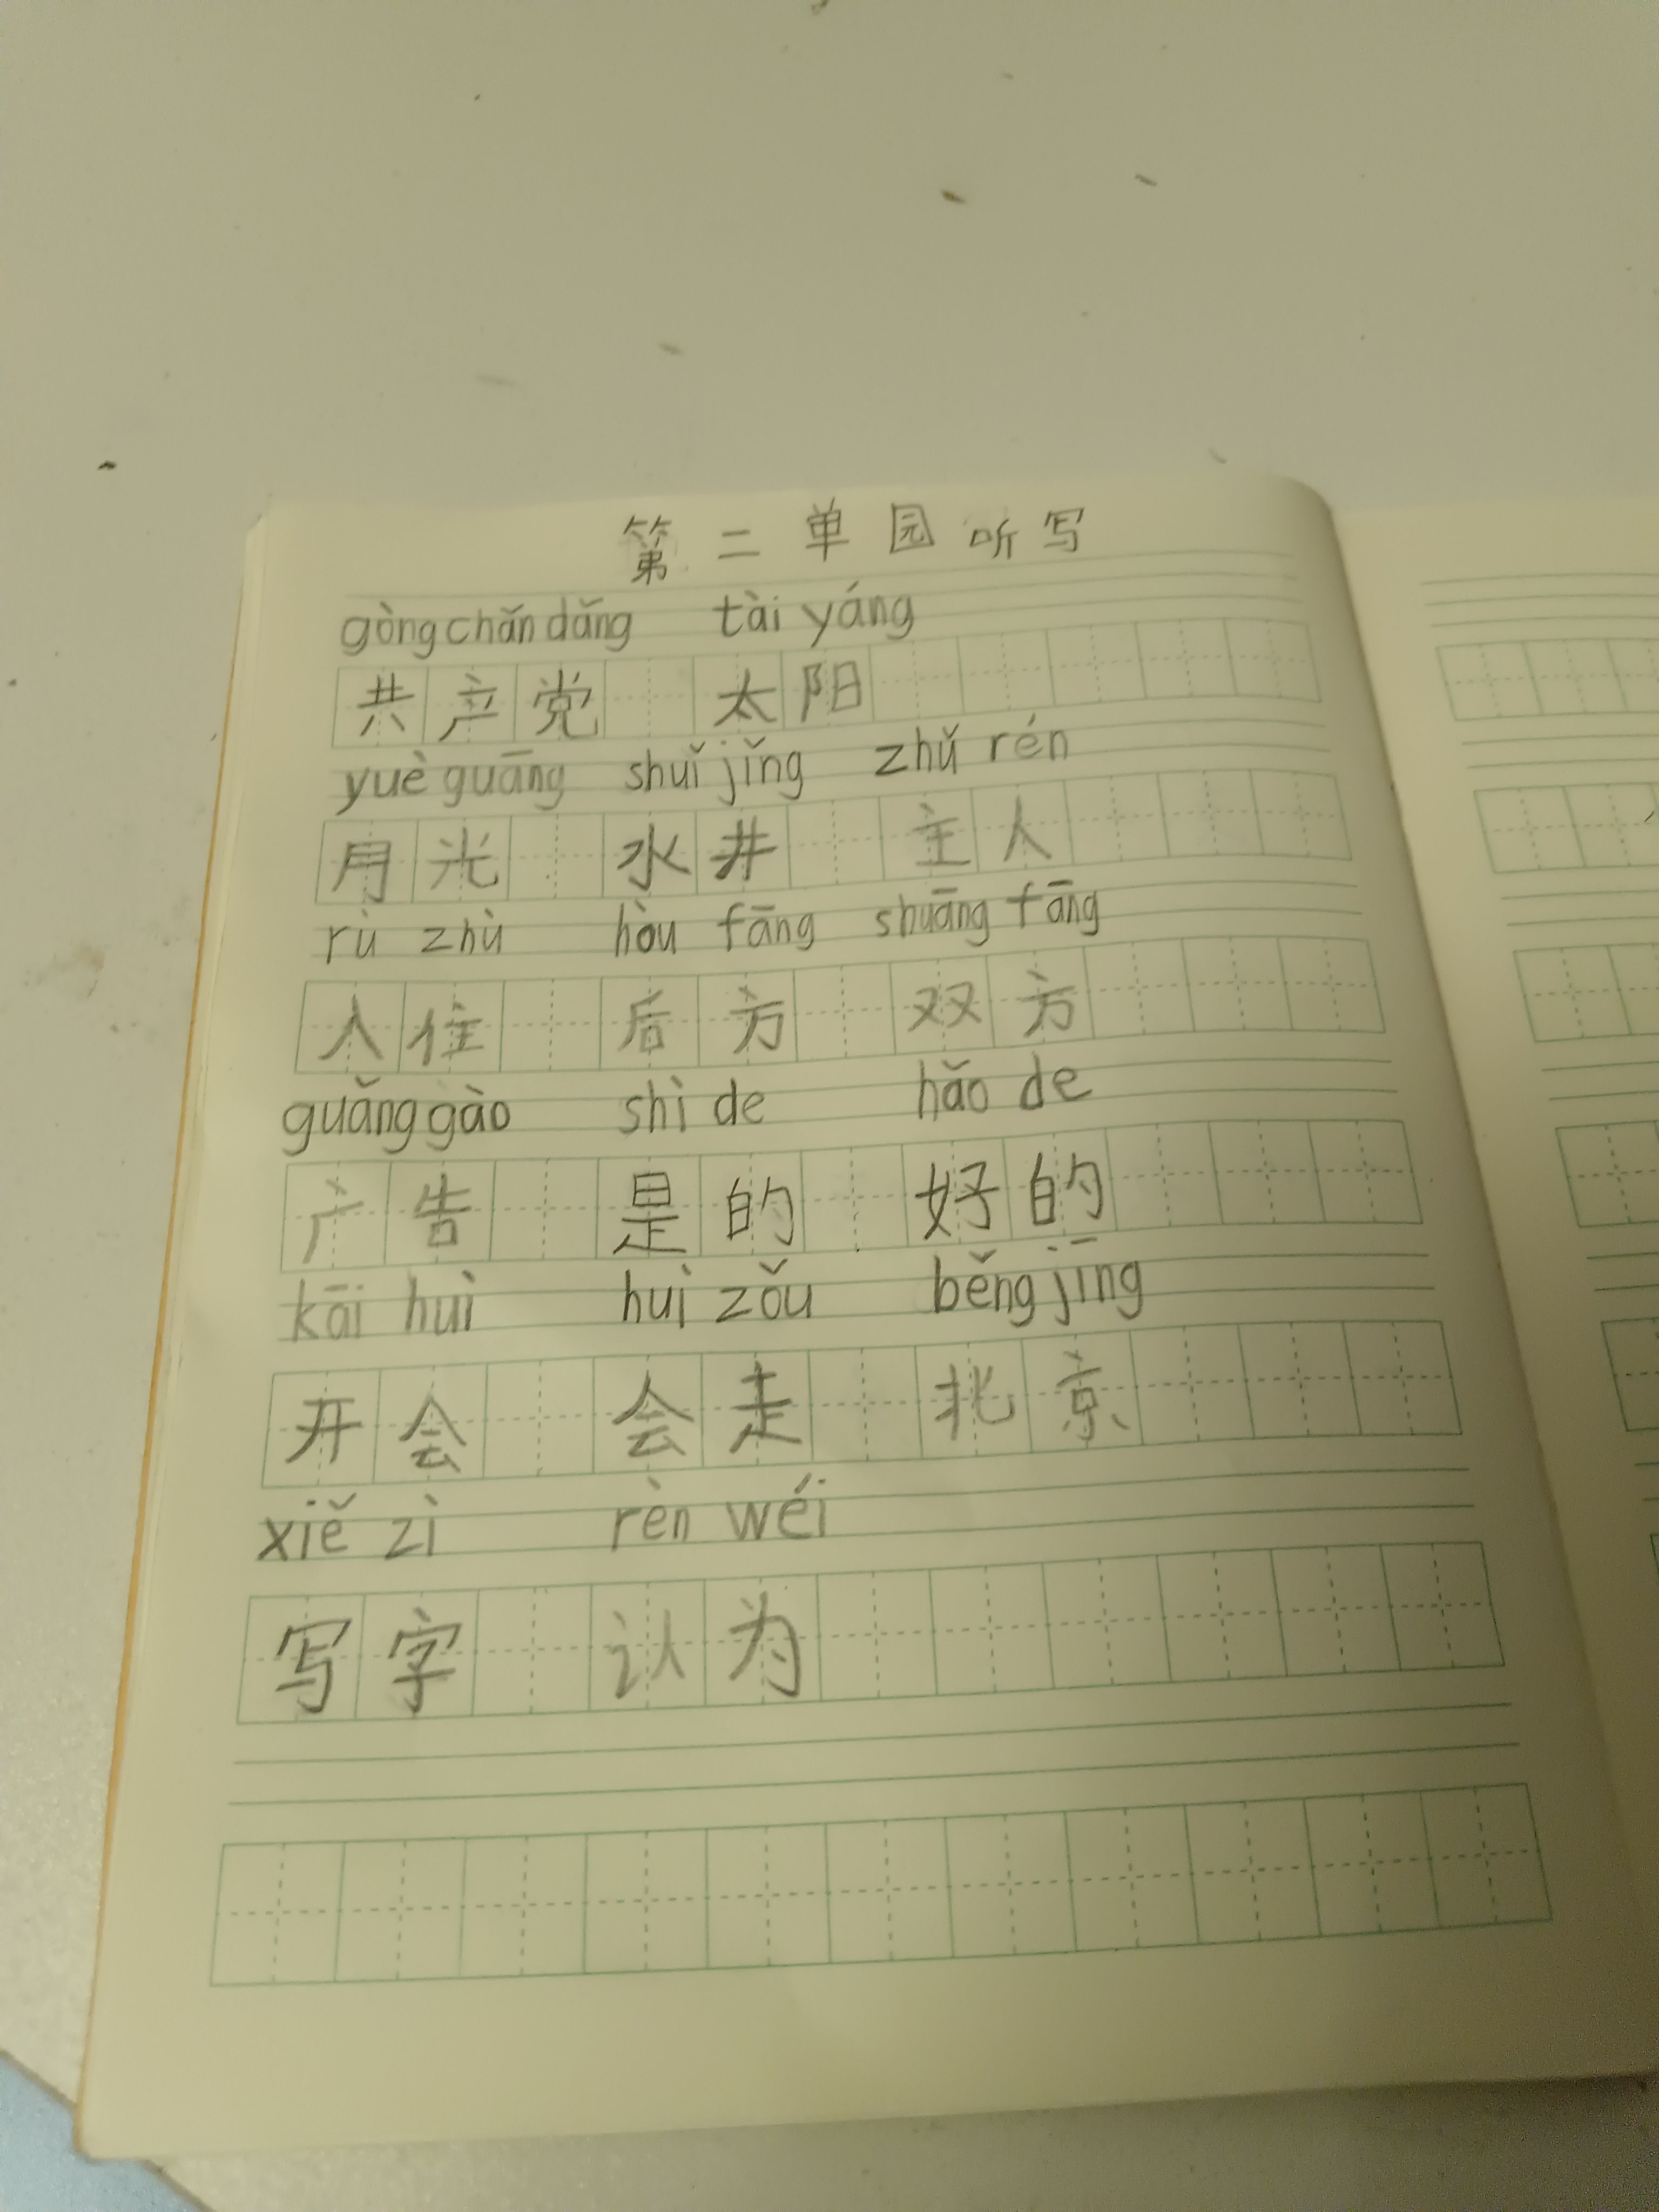 第二单园听写
gòng chǎn dǎng tài yáng
共产党 太阳
yuè guāng shuǐ jǐng zhǔ rén
月光 水井 主人
rù zhù hòu fāng shuāng fāng
入住 后方 双方
guǎng gào shì de hǎo de
广告 是的 好的
kāi huì huì zǒu běng jīng
开会 会走 北京
xiě zì rèn wéi
写字 认为